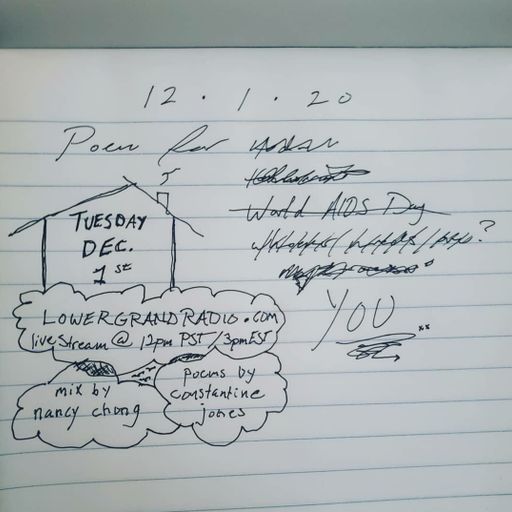 12 . 1 . 20
Poem for
World AIDS Day
?
YOU
TUESDAY
DEC.
1st
LOWERGRANDRADIO.com
livestream @ 12pm PST / 3pm EST
mix by
nancy chong
poems by
constantine
jones